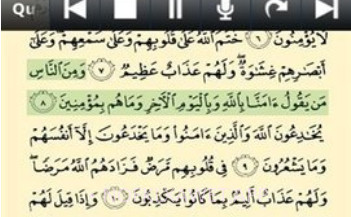 Qu
لَا يُؤْمِنُونَ ٦ خَتَمَ ٱللَّهُ عَلَىٰ قُلُوبِهِمْ وَعَلَىٰ سَمْعِهِمْ وَعَلَىٰٓ
أَبْصَـٰرِهِمْ غِشَـٰوَةٌ وَلَهُمْ عَذَابٌ عَظِيمٌ ٧ وَمِنَ ٱلنَّاسِ
مَن يَقُولُ ءَامَنَّا بِٱللَّهِ وَبِٱلْيَوْمِ ٱلْـَٔاخِرِ وَمَا هُم بِمُؤْمِنِينَ ٨
يُخَـٰدِعُونَ ٱللَّهَ وَٱلَّذِينَ ءَامَنُوا۟ وَمَا يَخْدَعُونَ إِلَّآ أَنفُسَهُمْ
وَمَا يَشْعُرُونَ ٩ فِى قُلُوبِهِم مَّرَضٌ فَزَادَهُمُ ٱللَّهُ مَرَضًا
وَلَهُمْ عَذَابٌ أَلِيمٌۢ بِمَا كَانُوا۟ يَكْذِبُونَ ١٠ وَإِذَا قِيلَ لَهُمْ